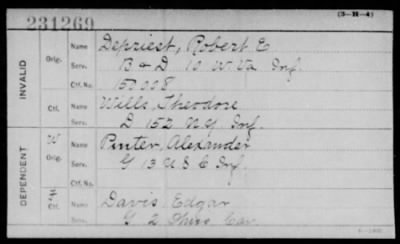 231269
(3-H-4)
INVALID
Orig. Name Depriest, Robert E
Serv. B & D 10 W.Va Inf.
Ctf. No. 157008
Ctf. Name Wills, Theodore
Serv. D 152 N Y Inf.
DEPENDENT
W Orig. Name Pinter, Alexander
Serv. G 13 U.S.C Inf.
Ctf. No.
Ctf. Name Davis, Edgar
Serv. G 2 Cav